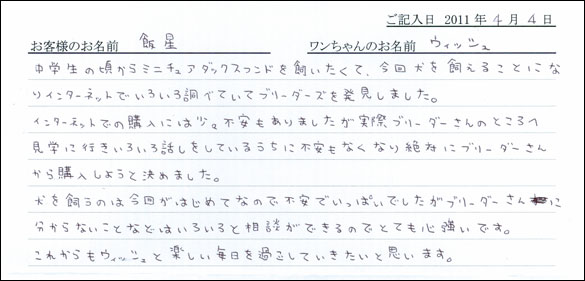 ご記入日 2011年 4月 4日
お客様のお名前 飯星 ワンちゃんのお名前 ウィッシュ
中学生の頃からミニチュアダックスフンドを飼いたくて、今回犬を飼えることにな
りインターネットでいろいろ調べていてブリーダーズを発見しました。
インターネットでの購入には少々不安もありましたが実際ブリーダーさんのところへ
見学に行きいろいろ話しをしているうちに不安もなくなり絶対にブリーダーさん
から購入しようと決めました。
犬を飼うのは今回がはじめてなので不安でいっぱいでしたがブリーダーさんに
分からないことなどはいろいろと相談ができるのでとても心強いです。
これからもウィッシュと楽しい毎日を過ごしていきたいと思います。